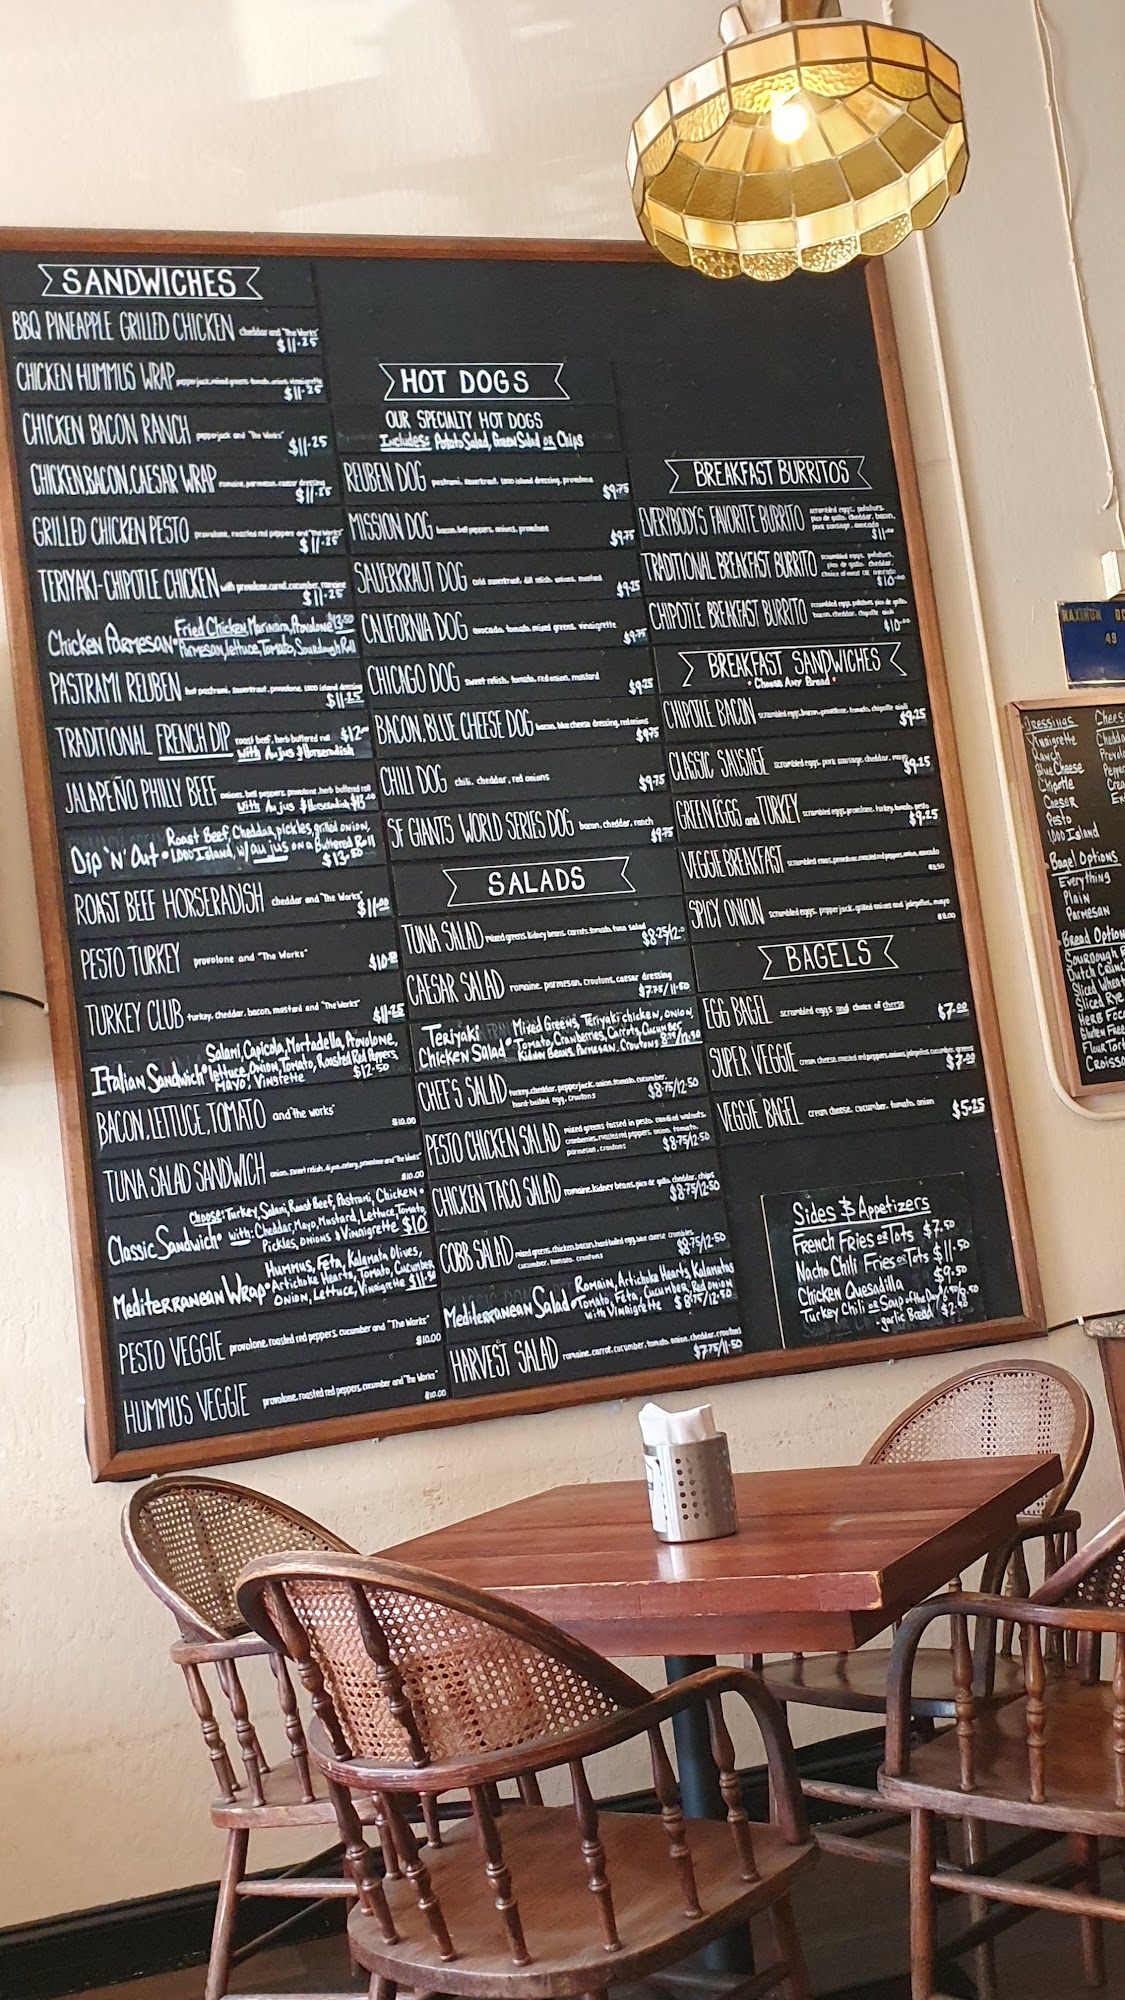 SANDWICHES
BBQ PINEAPPLE GRILLED CHICKEN cheddar and "The Works"
$11.25
CHICKEN HUMMUS WRAP pepperjack, mixed greens, tomato, onion, vinaigrette
$11.25
CHICKEN BACON RANCH pepperjack and "The Works"
$11.25
CHICKEN, BACON, CAESAR WRAP romaine, parmesan, caesar dressing
$11.25
GRILLED CHICKEN PESTO provolone, roasted red peppers and "The Works"
$11.25
TERIYAKI-CHIPOTLE CHICKEN with provolone, carrot, cucumber, romaine
$11.25
Chicken Parmesan Fried Chicken, Marinara, Provolone $13.50
Parmesan, lettuce, Tomato, Sourdough Roll
PASTRAMI REUBEN hot pastrami, sauerkraut, provolone, 1000 island dressing
$11.25
TRADITIONAL FRENCH DIP roast beef, herb buttered roll $12
with Au jus & Horseradish
JALAPEÑO PHILLY BEEF onions, bell peppers, provolone, herb buttered roll
with Au jus & Horseradish $13.00
Dip 'N' Out Roast Beef, Cheddar, pickles, grilled onion,
1,000 Island, w/ au jus on a Buttered Roll
$13.50
ROAST BEEF HORSERADISH cheddar and "The Works"
$11.00
PESTO TURKEY provolone and "The Works"
$10
TURKEY CLUB turkey, cheddar, bacon, mustard and "The Works"
$11.25
Italian Sandwich Salami, Capicola, Mortadella, Provolone,
lettuce, Onion, Tomato, Roasted Red Peppers,
Mayo, Vinegrette $12.50
BACON, LETTUCE, TOMATO and "the works"
$10.00
TUNA SALAD SANDWICH onion, sweet relish, dijon, celery, provolone and "The Works"
$10.00
Classic Sandwich Choose: Turkey, Salami, Roast Beef, Pastrami, Chicken
with: Cheddar, Mayo, Mustard, Lettuce, Tomato,
Pickles, Onions & Vinaigrette $10
Mediterranean Wrap Hummus, Feta, Kalamata Olives,
Artichoke Hearts, Tomato, Cucumber
Onion, Lettuce, Vinaigrette $11.50
PESTO VEGGIE provolone, roasted red peppers, cucumber and "The Works"
$10.00
HUMMUS VEGGIE provolone, roasted red peppers, cucumber and "The Works"
$10.00
HOT DOGS
OUR SPECIALTY HOT DOGS
Includes: Potato Salad, Green Salad or Chips
REUBEN DOG pastrami, sauerkraut, 1000 island dressing, provolone
$9.75
MISSION DOG bacon, bell peppers, onions, provolone
$9.75
SAUERKRAUT DOG cold sauerkraut, dill relish, onions, mustard
$9.25
CALIFORNIA DOG avocado, tomato, mixed greens, vinaigrette
$9.75
CHICAGO DOG sweet relish, tomato, red onion, mustard
$9.25
BACON, BLUE CHEESE DOG bacon, blue cheese dressing, red onions
$9.75
CHILI DOG chili, cheddar, red onions
$9.75
SF GIANTS WORLD SERIES DOG bacon, cheddar, ranch
$9.75
SALADS
TUNA SALAD mixed greens, kidney beans, carrots, tomato, tuna salad
$8.75/12.
CAESAR SALAD romaine, parmesan, croutons, caesar dressing
$7.75/11.50
Teriyaki Chicken Salad Mixed Greens, Teriyaki chicken, onion,
Tomato, Cranberries, Carrots, Cucumber
Kidney Beans, Parmesan, Croutons
CHEF'S SALAD turkey, cheddar, pepperjack, onion, tomato, cucumber,
hard-boiled egg, croutons $8.75/12.50
PESTO CHICKEN SALAD mixed greens tossed in pesto, candied walnuts,
cranberries, roasted red peppers, onion, tomato,
parmesan, croutons $8.75/12.50
CHICKEN TACO SALAD romaine, kidney beans, pico de gallo, cheddar, chips
$8.75/12.50
COBB SALAD mixed greens, chicken, bacon, hard boiled egg, blue cheese crumbles,
cucumber, tomato, croutons $8.75/12.50
Mediterranean Salad Romain, Artichoke Hearts, Kalamatas
Tomato, Feta, Cucumber, Red Onion
with Vinaigrette $8.75/12.50
HARVEST SALAD romaine, carrot, cucumber, tomato, onion, cheddar, croutons
$7.75/11.50
BREAKFAST BURRITOS
EVERYBODY'S FAVORITE BURRITO scrambled eggs, potatoes,
pico de gallo, cheddar, bacon,
pork sausage, avocado
$11.00
TRADITIONAL BREAKFAST BURRITO scrambled eggs, potatoes,
pico de gallo, cheddar,
choice of meat OR avocado
$10.00
CHIPOTLE BREAKFAST BURRITO scrambled eggs, potatoes, pico de gallo
bacon, cheddar, chipotle aioli
$10.00
BREAKFAST SANDWICHES
• Choose Any Bread •
CHIPOTLE BACON scrambled eggs, bacon, provolone, tomato, chipotle aioli
$9.25
CLASSIC SAUSAGE scrambled eggs, pork sausage, cheddar, mayo
$9.25
GREEN EGGS and TURKEY scrambled eggs, provolone, turkey, tomato, pesto
$9.25
VEGGIE BREAKFAST scrambled eggs, provolone, roasted red peppers, onion, avocado
$8.50
SPICY ONION scrambled eggs, pepperjack, grilled onions and jalapeños, mayo
$8.00
BAGELS
EGG BAGEL scrambled eggs and choice of cheese
$7.00
SUPER VEGGIE cream cheese, roasted red peppers, onions, jalapeños, cucumber, greens
$7.00
VEGGIE BAGEL cream cheese, cucumber, tomato, onion
$5.25
Sides & Appetizers
French Fries or Tots $7.50
Nacho Chili Fries or Tots $11.50
Chicken Quesadilla $9.50
Turkey Chili or Soup of the Day
- garlic Bread
MAXIMUM OC
49
Dressings
Vinaigrette
Ranch
Blue Cheese
Chipotle
Caesar
Pesto
1,000 Island
Chees
Chedda
Provol
Pepper
Crea
Ex
Bagel Options
Everything
Plain
Parmesan
Bread Option
Sourdough
Dutch Crunc
Sliced Wheat
Sliced Rye
Herb Foca
Gluten Free
Flour Tort
Croissa